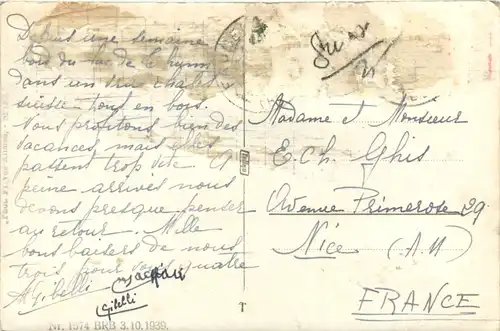 Depuis une semaine
bois du lac de
dans un chalet
suisse tout en bois.
Nous profitons bien des
vacances, mais elles
passent trop vite. A
peine arrivés nous
devons presque penser
au retour. Mille
bons baisers de nous
trois pour vous quatre
M Gibelli
Gibelli
Madame et Monsieur
E. Ch. Ghis
Avenue Primerose 29
Nice (A.M)
FRANCE
Nr. 1574 BRB 3.10.1939.